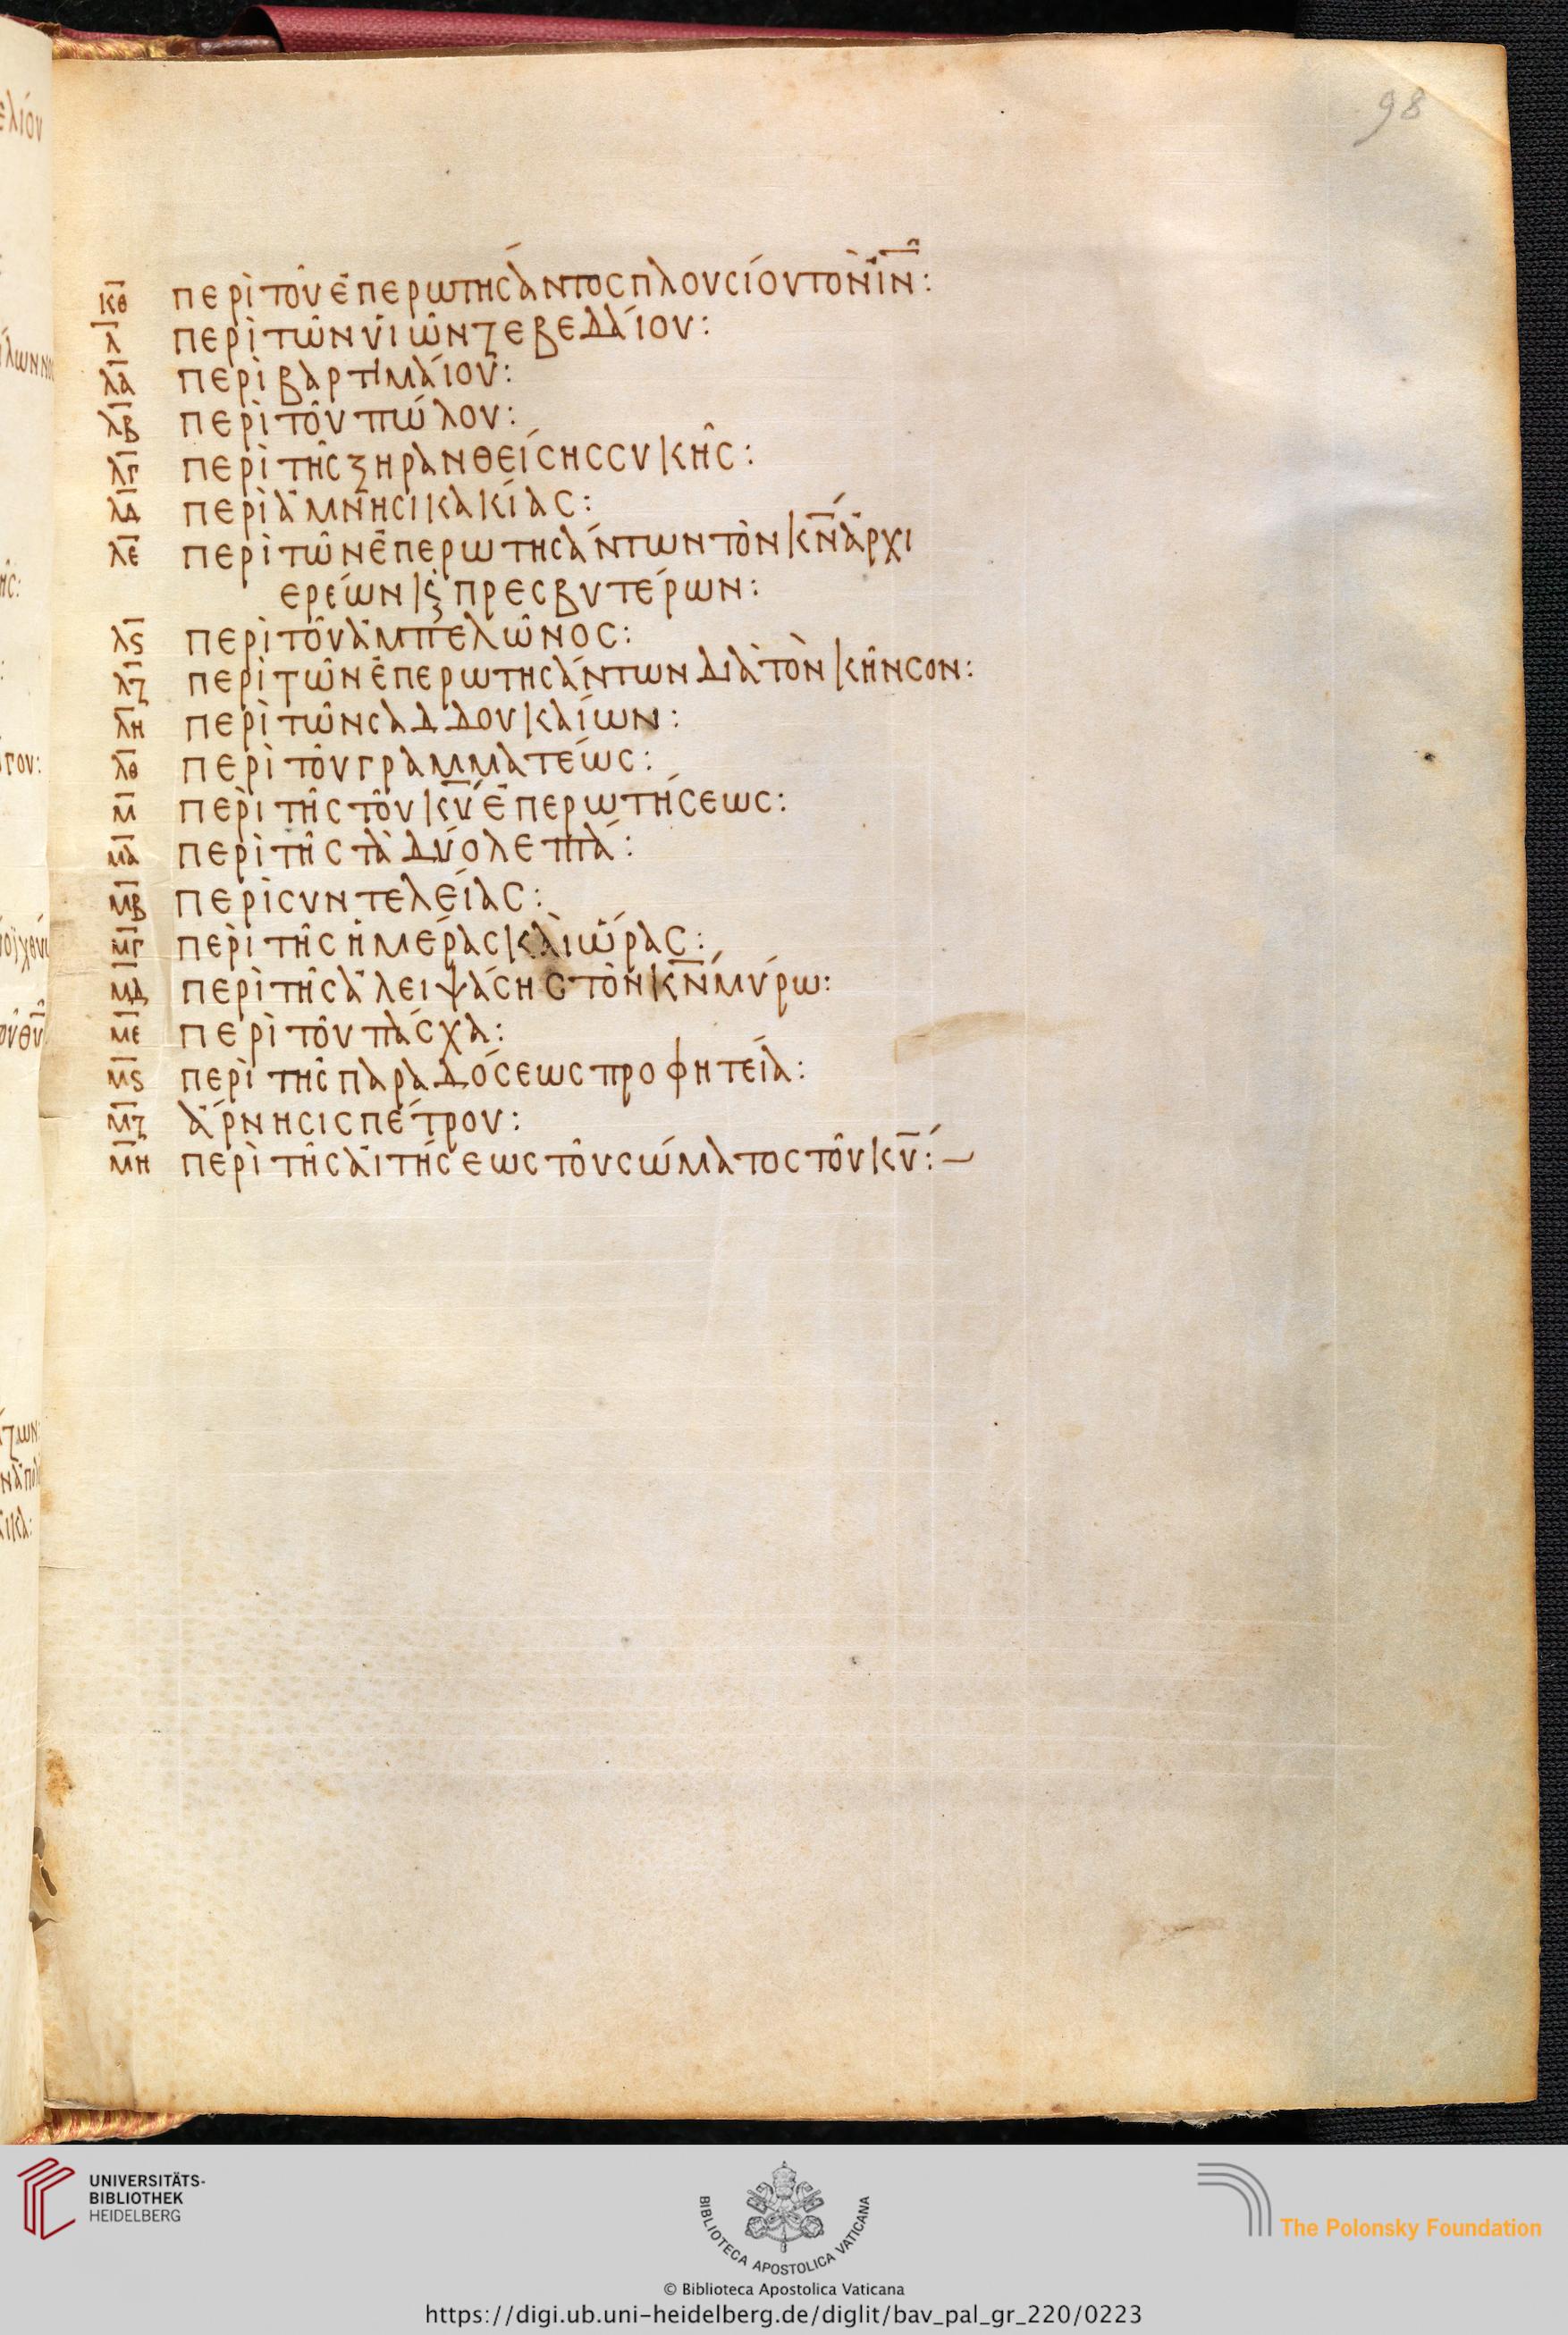 98
κθ περὶ τοῦ ἐπερωτήσαντος πλουσίου τὸν ἰν̅:
λ περὶ τῶν υἱῶν ζεβεδαίου:
λα περὶ βαρτιμαίου:
λβ περὶ τοῦ πώλου:
λγ περὶ τῆς ξηρανθείσης συκῆς:
λδ περὶ ἀμνησικακίας:
λε περὶ τῶν ἐπερωτησάντων τὸν κν̅ ἀρχι
ερέων κ̀ πρεσβυτέρων:
λϛ περὶ τοῦ ἀμπελῶνος:
λζ περὶ τῶν ἐπερωτησάντων διὰ τὸν κῆνσον:
λη περὶ τῶν σαδδουκαίων:
λθ περὶ τοῦ γραμματέως:
μ περὶ τῆς τοῦ κυ̅ ἐπερωτήσεως:
μα περὶ τῆς τὰ δύο λεπτά:
μβ περὶ συντελείας:
μγ περὶ τῆς ἡμέρας καὶ ὥρας:
μδ περὶ τῆς ἀλειψάσης τὸν κν̅ μύρω:
με περὶ τοῦ πάσχα:
μϛ περὶ τῆς παραδόσεως προφητεία:
μζ ἄρνησις πέτρου:
μη περὶ τῆς αἰτήσεως τοῦ σώματος τοῦ κυ̅:
UNIVERSITÄTS-
BIBLIOTHEK
HEIDELBERG
BIBLIOTECA APOSTOLICA VATICANA
The Polonsky Foundation
© Biblioteca Apostolica Vaticana
https://digi.ub.uni-heidelberg.de/diglit/bav_pal_gr_220/0223